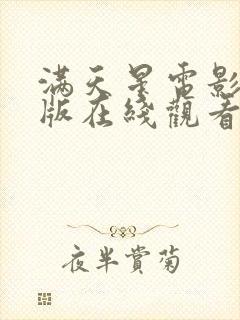 满天星電影
版在綫觀看
夜半賞菊